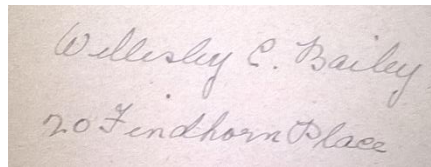 Wellesley C. Bailey
20 Findhorn Place